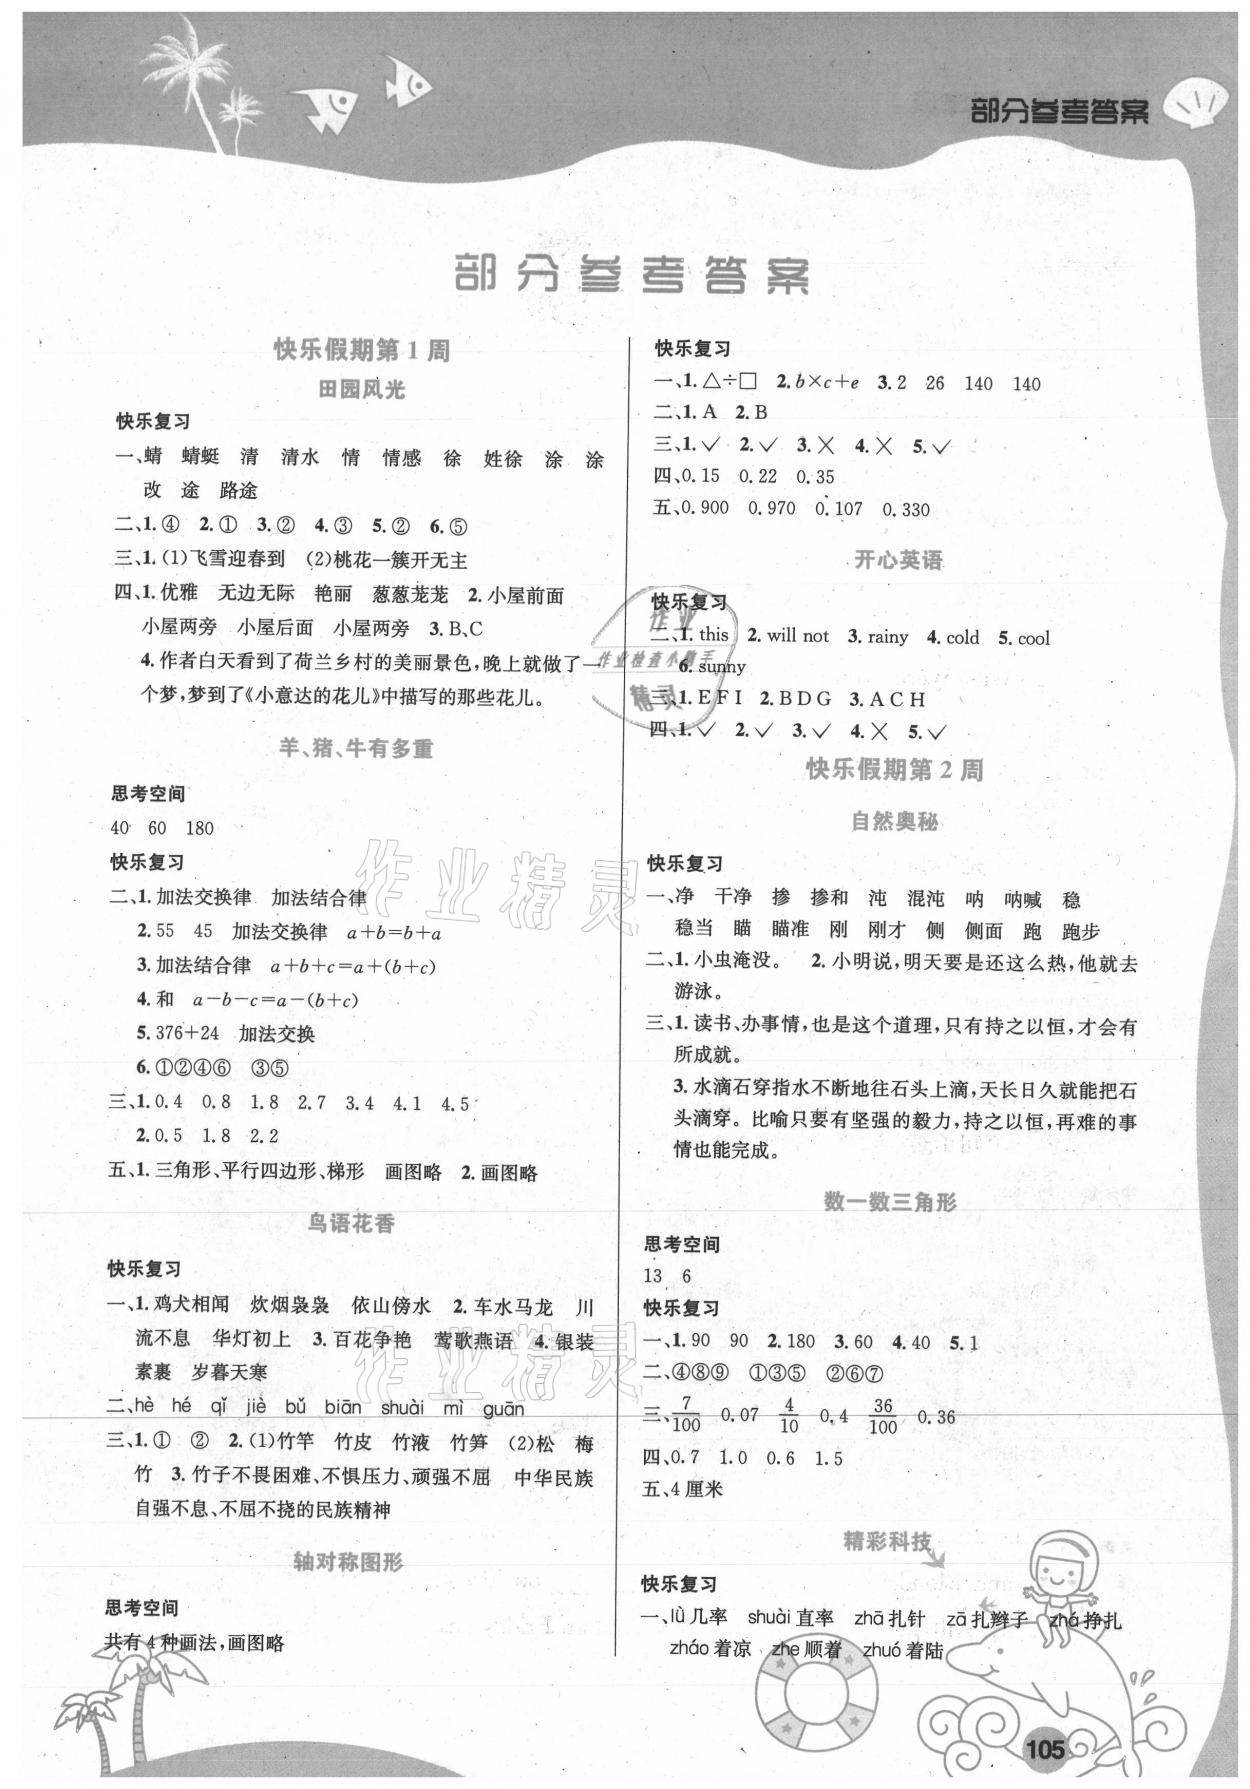 部分参考答案
部分参考答案
快乐假期第1周
田园风光
快乐复习
一、蜻 蜻蜓 清 清水 情 情感 徐 姓徐 涂 涂
改 途 路途
二、1.④ 2.① 3.② 4.③ 5.② 6.⑤
三、1.(1)飞雪迎春到 (2)桃花一簇开无主
四、1.优雅 无边无际 艳丽 葱葱茏茏 2.小屋前面
小屋两旁 小屋后面 小屋两旁 3.B、C
4.作者白天看到了荷兰乡村的美丽景色,晚上就做了一
个梦,梦到了《小意达的花儿》中描写的那些花儿。
羊、猪、牛有多重
思考空间
40 60 180
快乐复习
二、1.加法交换律 加法结合律
2.55 45 加法交换律 a+b=b+a
3.加法结合律 a+b+c=a+(b+c)
4.和 a-b-c=a-(b+c)
5.376+24 加法交换
6.①②④⑥ ③⑤
三、1.0.4 0.8 1.8 2.7 3.4 4.1 4.5
2.0.5 1.8 2.2
五、1.三角形、平行四边形、梯形 画图略 2.画图略
鸟语花香
快乐复习
一、1.鸡犬相闻 炊烟袅袅 依山傍水 2.车水马龙 川
流不息 华灯初上 3.百花争艳 莺歌燕语 4.银装
素裹 岁暮天寒
二、hè hé qǐ jiè bǔ biān shuài mì guān
三、1.① ② 2.(1)竹竿 竹皮 竹液 竹笋 (2)松 梅
竹 3.竹子不畏困难、不惧压力、顽强不屈 中华民族
自强不息、不屈不挠的民族精神
轴对称图形
思考空间
共有4种画法,画图略
快乐复习
一、1.△÷□ 2.b×c+e 3.2 26 140 140
二、1.A 2.B
三、1.✓ 2.✓ 3.✗ 4.✗ 5.✓
四、0.15 0.22 0.35
五、0.900 0.970 0.107 0.330
开心英语
快乐复习
二、1.this 2.will not 3.rainy 4.cold 5.cool
6.sunny
三、1.E F I 2.B D G 3.A C H
四、1.✓ 2.✓ 3.✓ 4.✗ 5.✓
快乐假期第2周
自然奥秘
快乐复习
一、净 干净 掺 掺和 沌 混沌 呐 呐喊 稳
稳当 瞄 瞄准 刚 刚才 侧 侧面 跑 跑步
二、1.小虫淹没。 2.小明说,明天要是还这么热,他就去
游泳。
三、1.读书、办事情,也是这个道理,只有持之以恒,才会有
所成就。
3.水滴石穿指水不断地往石头上滴,天长日久就能把石
头滴穿。比喻只要有坚强的毅力,持之以恒,再难的事
情也能完成。
数一数三角形
思考空间
13 6
快乐复习
一、1.90 90 2.180 3.60 4.40 5.1
二、④⑧⑨ ①③⑤ ②⑥⑦
三、7/100 0.07 4/10 0.4 36/100 0.36
四、0.7 1.0 0.6 1.5
五、4厘米
精彩科技
快乐复习
一、lǜ几率 shuài直率 zhā扎针 zā扎辫子 zhá挣扎
zháo着凉 zhe顺着 zhuó着陆
作业
作业检查小助手
精灵
作业精灵
作业精灵
105